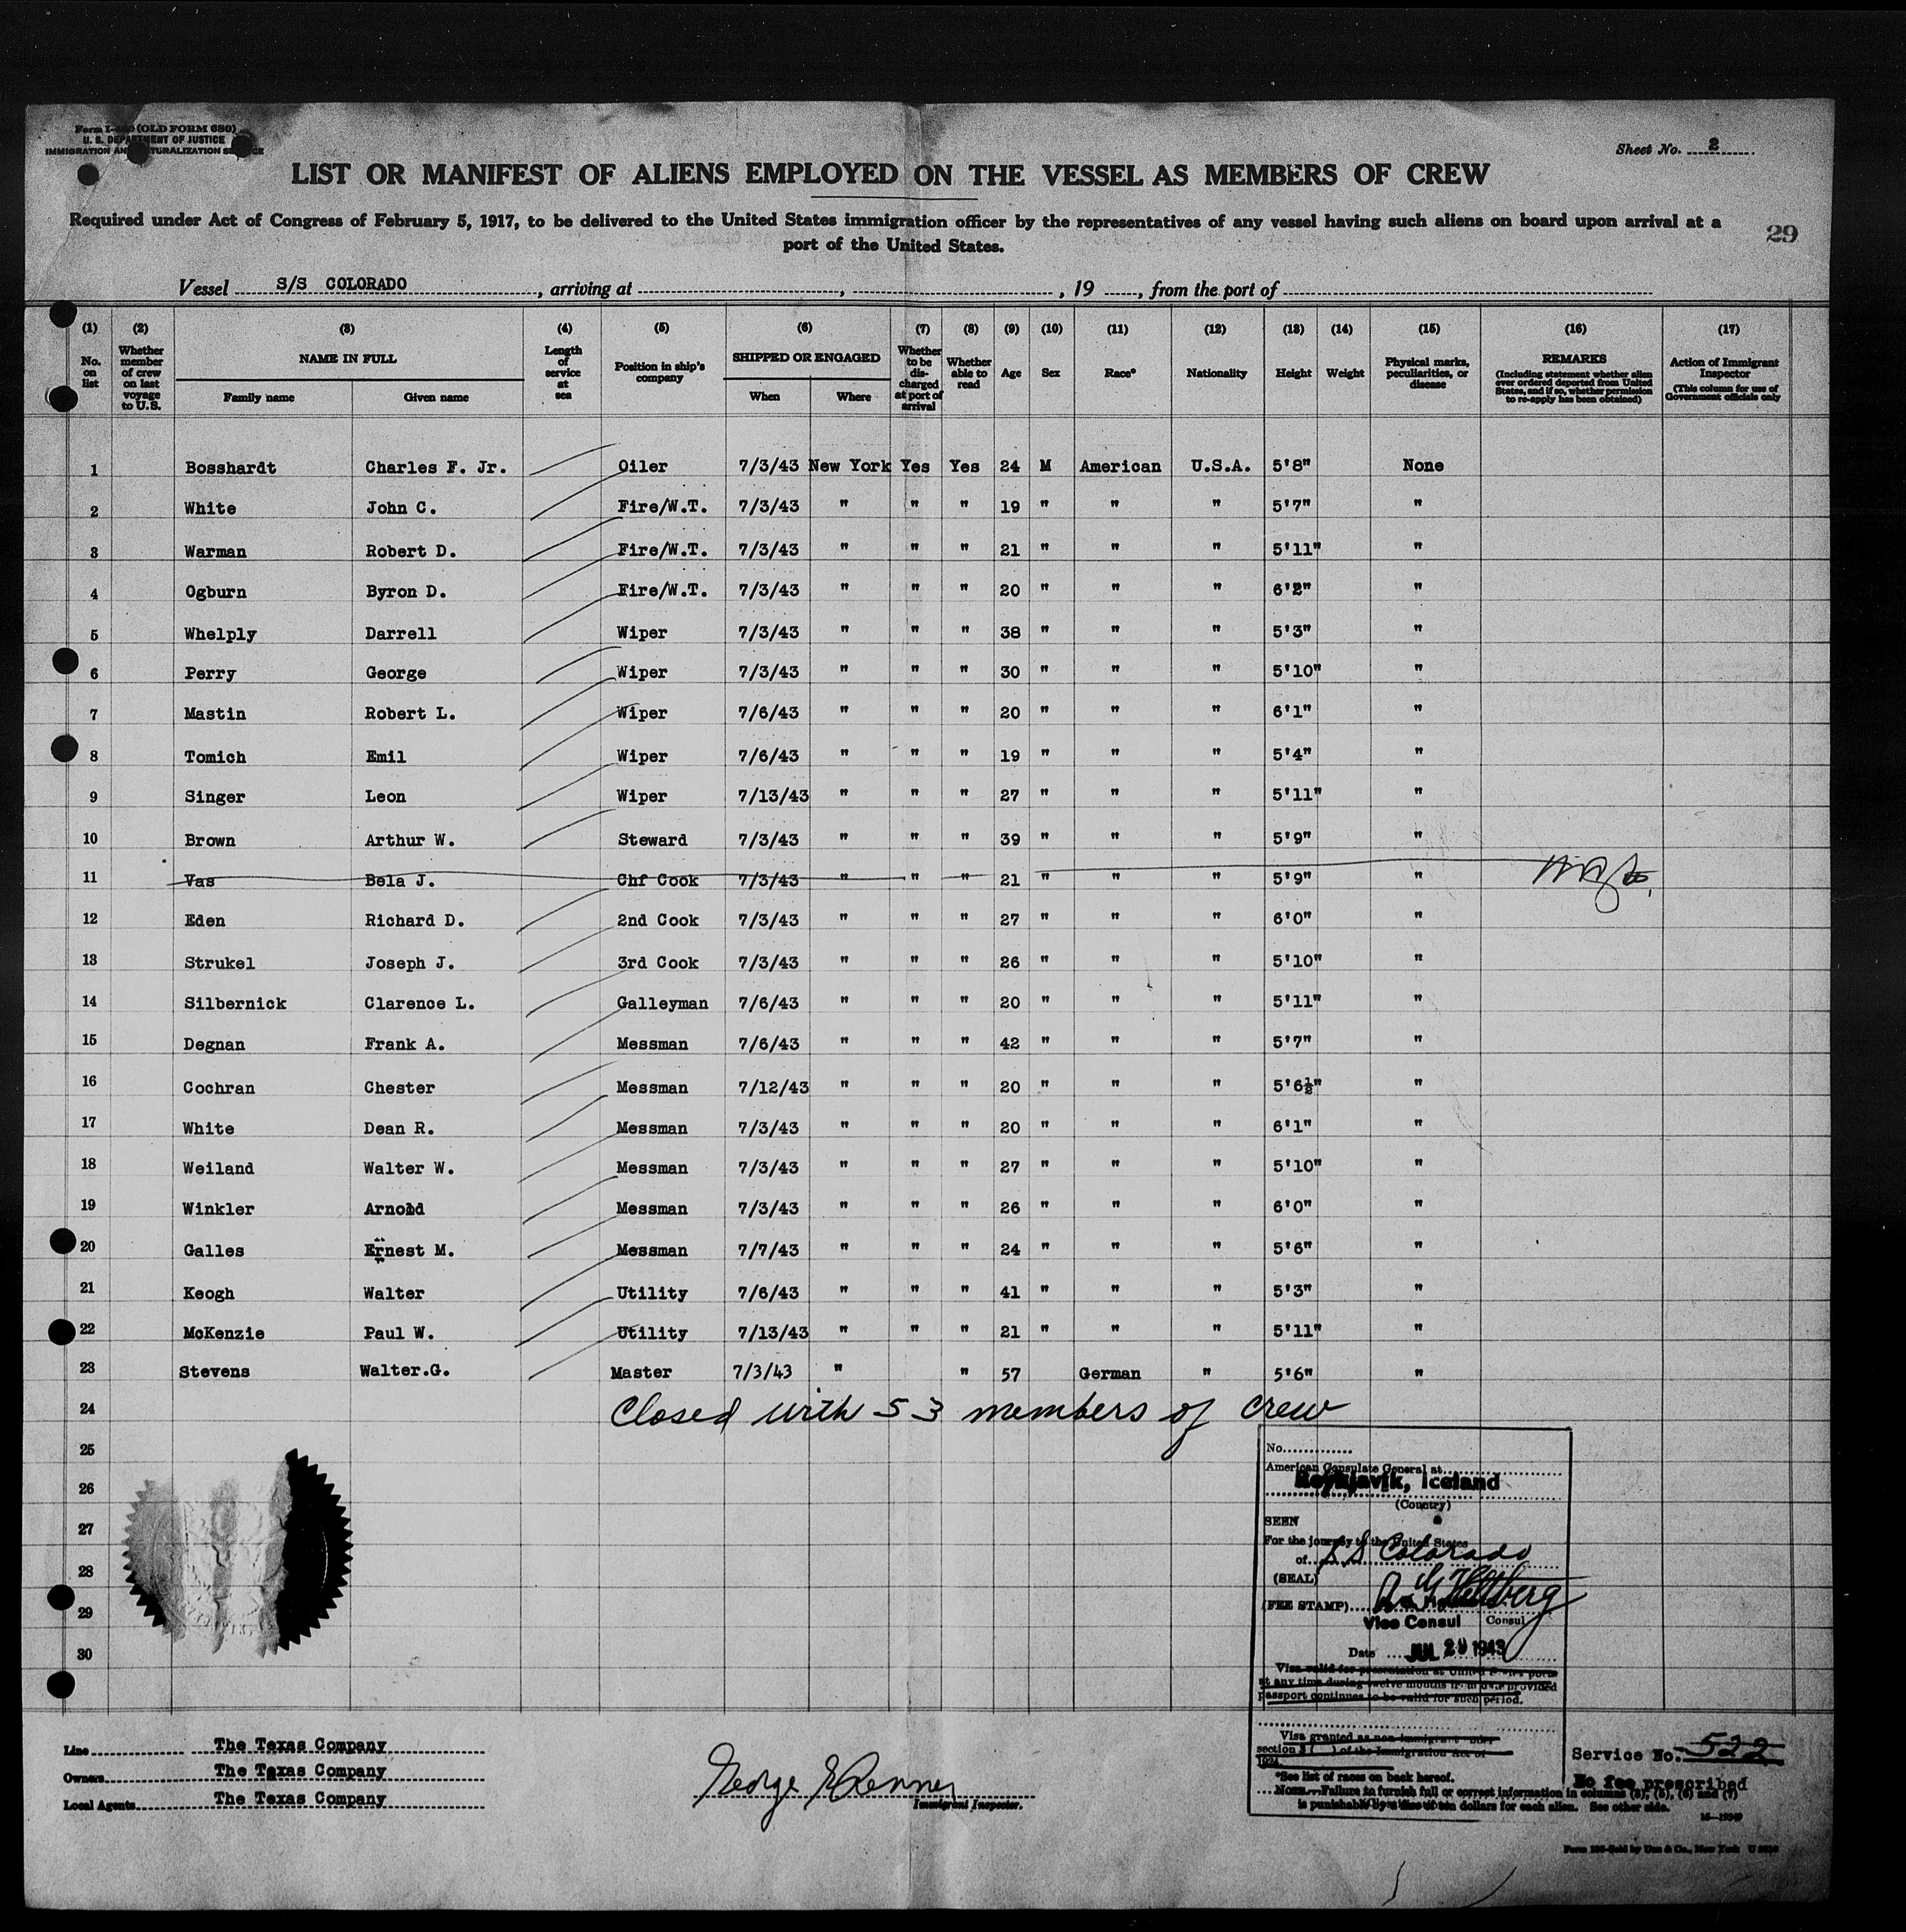 Form I-480 (OLD FORM 680)
U. S. DEPARTMENT OF JUSTICE
IMMIGRATION AND NATURALIZATION SERVICE
Sheet No. 2
LIST OR MANIFEST OF ALIENS EMPLOYED ON THE VESSEL AS MEMBERS OF CREW
Required under Act of Congress of February 5, 1917, to be delivered to the United States immigration officer by the representatives of any vessel having such aliens on board upon arrival at a
port of the United States.
29
Vessel S/S COLORADO, arriving at , , 19 , from the port of
(1) (2) (3) (4) (5) (6) (7) (8) (9) (10) (11) (12) (13) (14) (15) (16) (17)
No. on list Whether member of crew on last voyage to U.S. NAME IN FULL Family name Given name Length of service at sea Position in ship's company SHIPPED OR ENGAGED When Where Whether to be discharged at port of arrival Whether able to read Age Sex Race* Nationality Height Weight Physical marks, peculiarities, or disease REMARKS (Including statement whether alien ever ordered deported from United States, and if so, whether permission to re-apply has been obtained) Action of Immigrant Inspector (This column for use of Government officials only
1 Bosshardt Charles F. Jr. Oiler 7/3/43 New York Yes Yes 24 M American U.S.A. 5'8" None
2 White John C. Fire/W.T. 7/3/43 " " " 19 " " " 5'7" "
3 Warman Robert D. Fire/W.T. 7/3/43 " " " 21 " " " 5'11" "
4 Ogburn Byron D. Fire/W.T. 7/3/43 " " " 20 " " " 6'2" "
5 Whelply Darrell Wiper 7/3/43 " " " 38 " " " 5'3" "
6 Perry George Wiper 7/3/43 " " " 30 " " " 5'10" "
7 Mastin Robert L. Wiper 7/6/43 " " " 20 " " " 6'1" "
8 Tomich Emil Wiper 7/6/43 " " " 19 " " " 5'4" "
9 Singer Leon Wiper 7/13/43 " " " 27 " " " 5'11" "
10 Brown Arthur W. Steward 7/3/43 " " " 39 " " " 5'9" "
11 Vas Bela J. Chf Cook 7/3/43 " " " 21 " " " 5'9" "
12 Eden Richard D. 2nd Cook 7/3/43 " " " 27 " " " 6'0" "
13 Strukel Joseph J. 3rd Cook 7/3/43 " " " 26 " " " 5'10" "
14 Silbernick Clarence L. Galleyman 7/6/43 " " " 20 " " " 5'11" "
15 Degnan Frank A. Messman 7/6/43 " " " 42 " " " 5'7" "
16 Cochran Chester Messman 7/12/43 " " " 20 " " " 5'6½" "
17 White Dean R. Messman 7/3/43 " " " 20 " " " 6'1" "
18 Weiland Walter W. Messman 7/3/43 " " " 27 " " " 5'10" "
19 Winkler Arnold Messman 7/3/43 " " " 26 " " " 6'0" "
20 Galles Ernest M. Messman 7/7/43 " " " 24 " " " 5'6" "
21 Keogh Walter Utility 7/6/43 " " " 41 " " " 5'3" "
22 McKenzie Paul W. Utility 7/13/43 " " " 21 " " " 5'11" "
23 Stevens Walter.G. Master 7/3/43 " " 57 German " 5'6" "
24 Closed with 53 members of crew
25
26
27
28
29
30
No.
American Consulate General at
Reykjavik, Iceland
(Country)
SEEN
For the journey to the United States
of S S Colorado
(SEAL)
(FEE STAMP)
Vice Consul Consul
Date JUL 1943
Visa valid for presentation at United States ports
at any time during twelve months from date provided
passport continues to be valid for such period.
Visa granted as non-immigrant under
section 3 ( ) of the Immigration Act of
1924
*See list of races on back hereof.
NOTE.—Failure to furnish full or correct information in columns (3), (5), (6) and (7)
is punishable by a fine of ten dollars for each alien. See other side.
Service No. 522
No fee prescribed
Line The Texas Company
Owners The Texas Company
Local Agents The Texas Company
George E Renner
Immigrant Inspector.